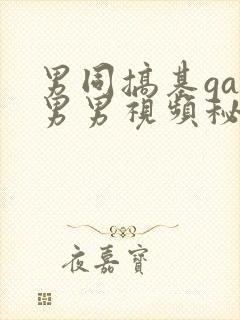 男同搞基ga
男男視頻秘
夜嘉寶